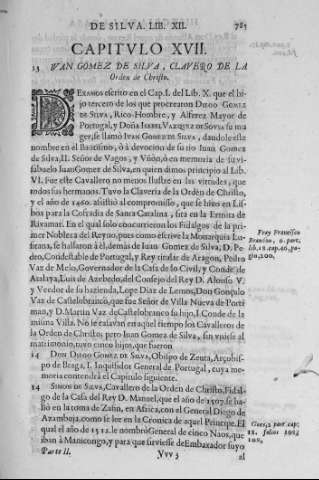 DE SILVA. LIB. XII. 785
CAPITVLO XVII.
13 IVAN GOMEZ DE SILVA, CLAVERO DE LA
Orden de Christo.
DEXAMOS escrito en el Cap. I. del Lib. X. que el hi-
jo tercero de los que procrearon DIOGO GOMEZ
DE SILVA, Rico-Hombre, y Alferez Mayor de
Portugal, y DOÑA ISABEL VAZQVEZ DE SOVSA su mu
ger, se llamó IVAN GOMEZ DE SILVA, dandole este
nombre en el Bautismo, ò à devocion de su tio Iuan Gomez
de Silva, II. Señor de Vagos, y Vñón, ò en memoria de su vi-
sabuelo Iuan Gomez de Silva, en quien dimos principio al Lib.
VI. Fue este Cavallero no menos ilustre en las virtudes, que
todos sus hermanos. Tuvo la Claveria de la Orden de Christo,
y el año de 1460. assistiò al compromisso, que se hizo en Lis-
boa para la Cofradia de Santa Catalina, sita en la Ermita de
Rivamar. En el qual solo concurrieron los Fidalgos de la pri-
mer Nobleza del Reyno, pues como escrive la Monarquia Lu-
sitana, se hallaron à èl, demás de Iuan Gomez de Silva, D. Pe-
dro, Condestable de Portugal, y Rey titular de Aragon, Pedro
Vaz de Melo, Governador de la Casa de lo Civil, y Conde de
Atalaya, Luis de Azebedo, del Consejo del Rey D. Alonso V.
y Veedor de su hazienda, Lope Diaz de Lemos, Don Gonçalo
Vaz de Castelobranco, que fue Señor de Villa Nueva de Porti
mao, y D. Martin Vaz de Castelobranco su hijo, I. Conde de la
misma Villa. No se casavan en aquel tiempo los Cavalleros de
la Orden de Christo, pero Iuan Gomez de Silva, sin vnirse al
matrimonio, tuvo cinco hijos, que fueron
Fray Francisco
14 DON DIOGO GOMEZ DE SILVA, Obispo de Zeuta, Arçobis-
po de Braga, I. Inquisidor General de Portugal, cuya me-
moria contendrá el Capitulo siguiente.
14 SIMON DE SILVA, Cavallero de la Orden de Christo, Fidal-
go de la Casa del Rey D. Manuel, que el año de 1507. se ha-
llò en la toma de Zafin, en Africa, con el General Diego de
Azambuja, como se lee en la Cronica de aquel Principe. El
qual el año de 1512. le nombrò General de cinco Naos, que
iban à Manicongo, y para que sirviesse de Embaxador suyo
Parte II. Vvv 3 al